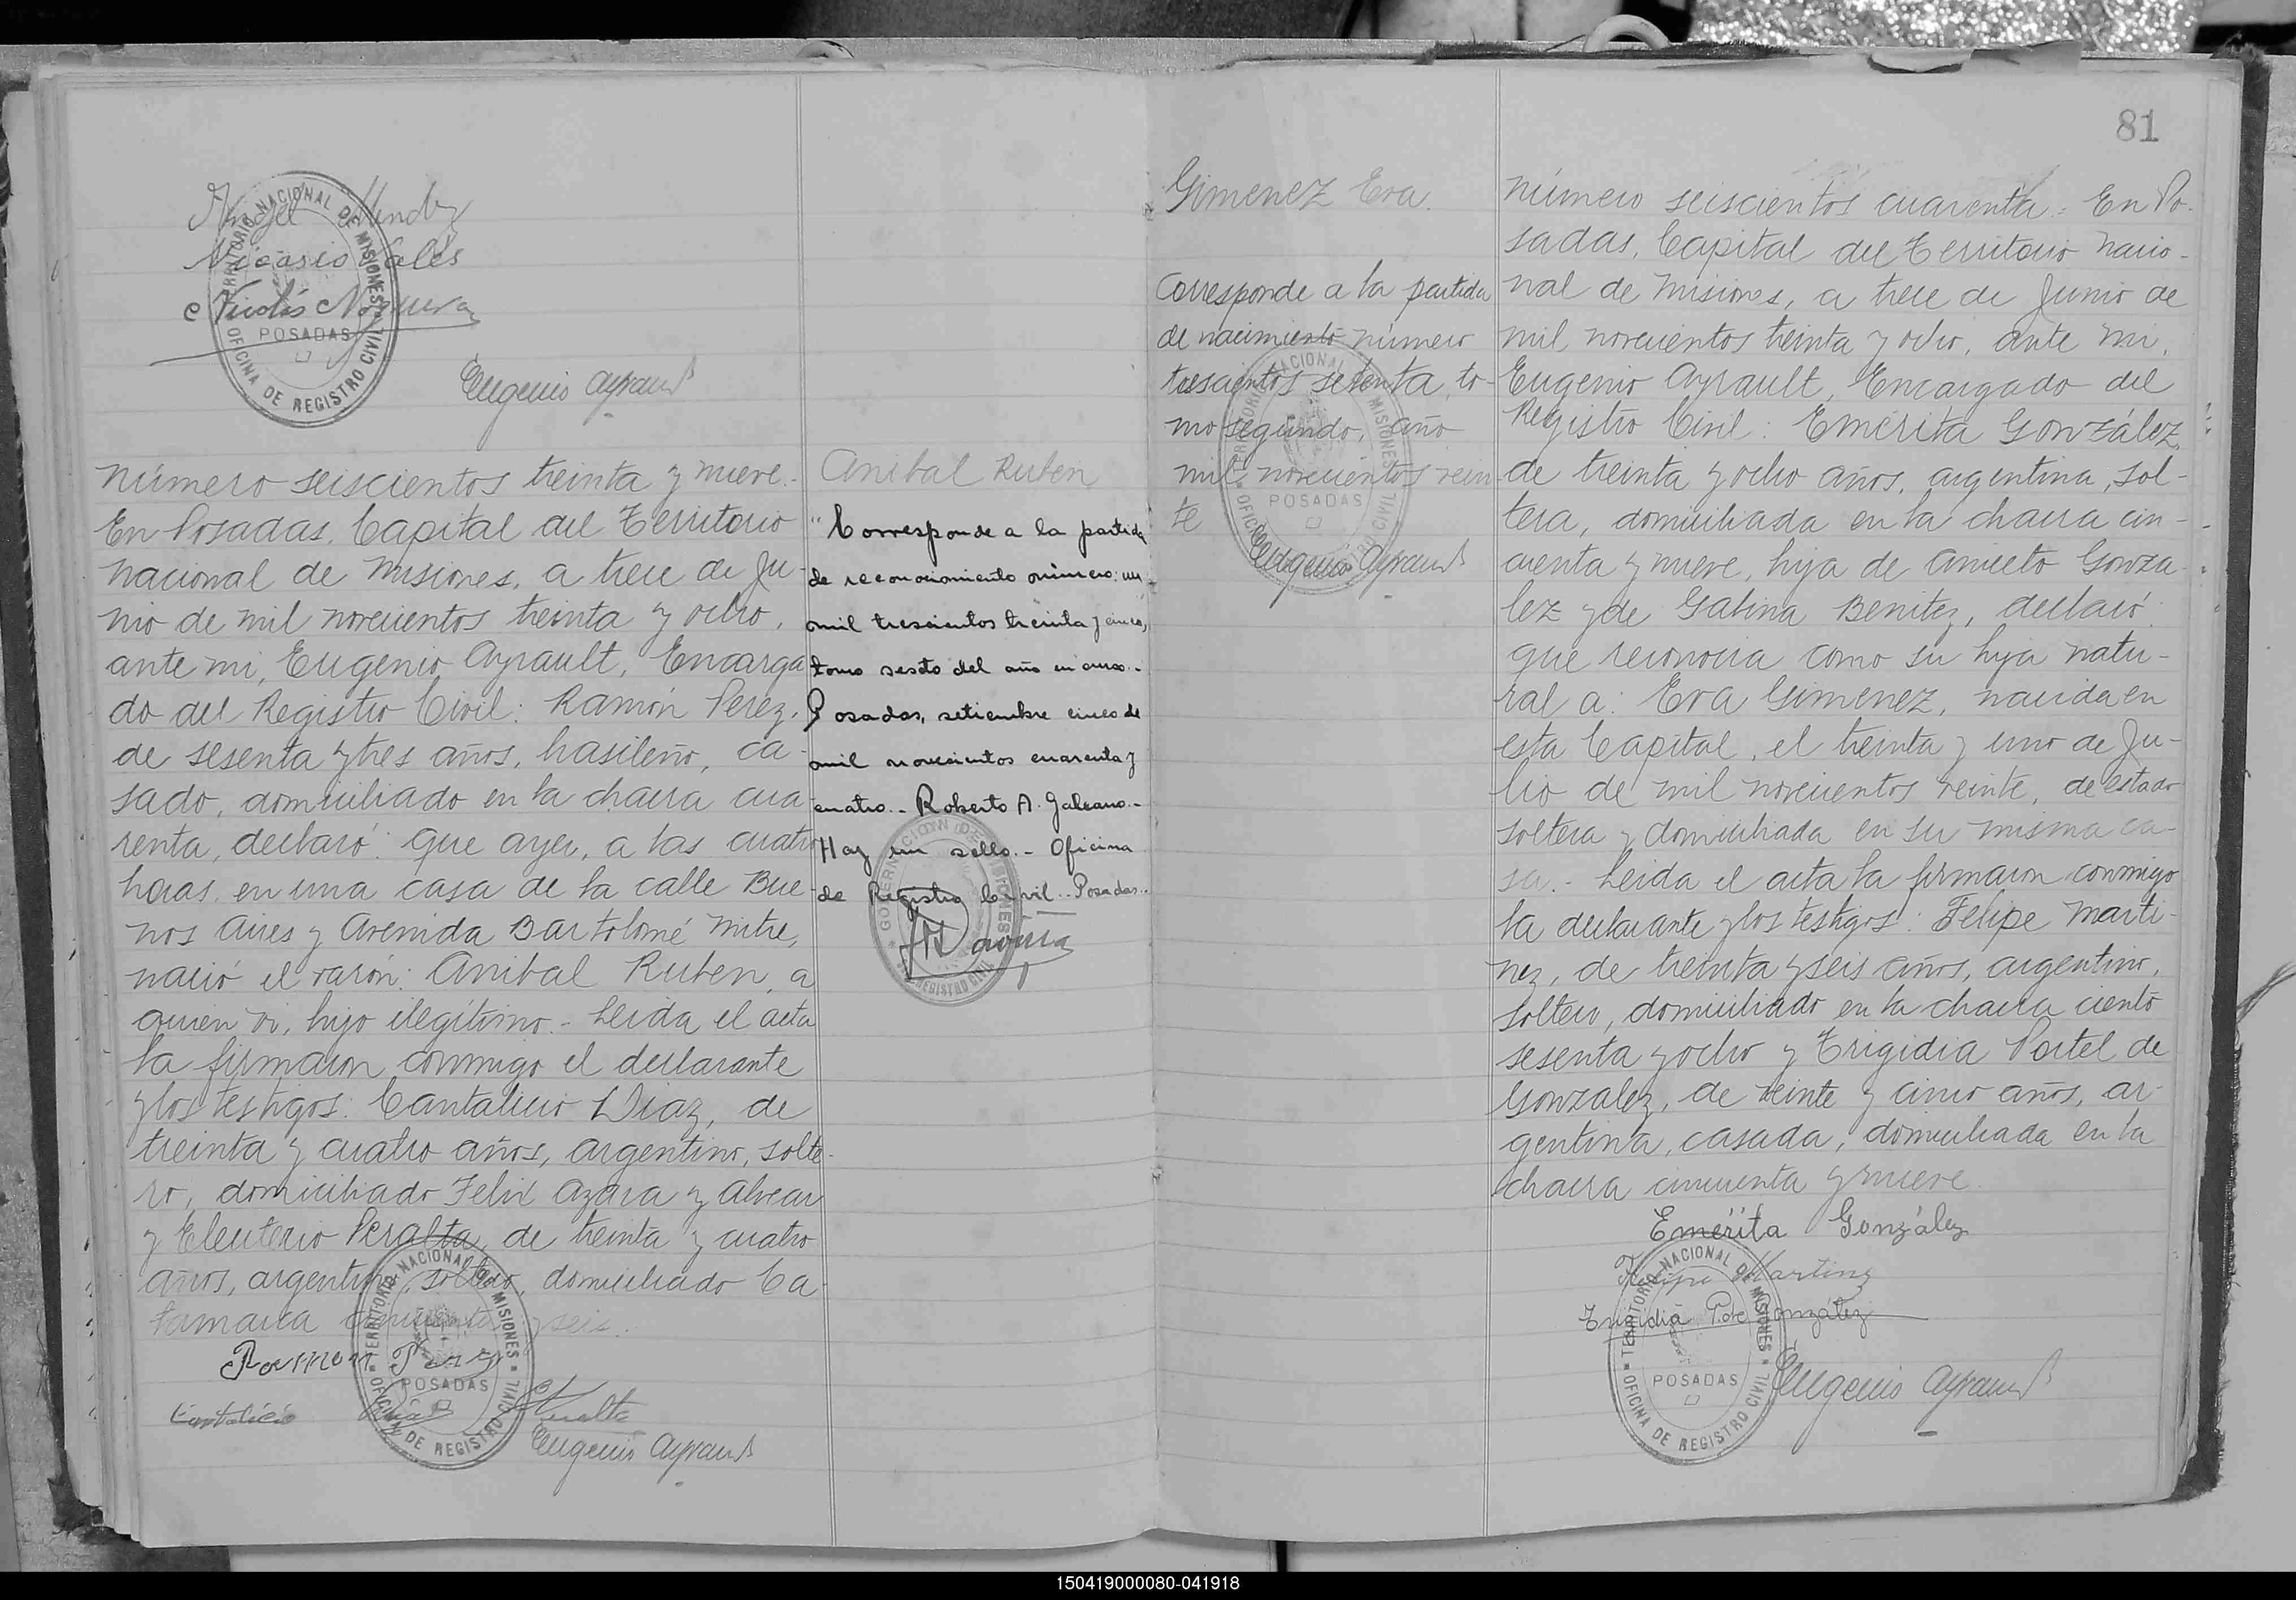 Angel Mendez
Nicasio Valés
Nicolás Noguera
TERRITORIO NACIONAL DE MISIONES
POSADAS
OFICINA DE REGISTRO CIVIL
Eugenio Ayrault
número seiscientos treinta y nueve.-
En Posadas, Capital del Territorio
nacional de Misiones, a trece de Ju-
nio de mil novecientos treinta y ocho,
ante mi, Eugenio Ayrault, Encarga
do del Registro Civil: Ramón Perez,
de sesenta y tres años, brasileño, ca-
sado, domiciliado en la chacra cua
renta, declaró: que ayer, a las cuatro
horas, en una casa de la calle Bue-
nos Aires y Avenida Bartolomé Mitre,
nació el varón: Anibal Ruben, a
quien vi, hijo ilegítimo.- Leida el acta
la firmaron conmigo el declarante
y los testigos: Cantalicio Diaz, de
treinta y cuatro años, argentino, solte-
ro, domiciliado Felix Azara y Alvear
y Eleuterio Peralta, de treinta y cuatro
años, argentino, soltero, domiciliado Ca-
tamarca cincuenta y seis.
Ramon Perez
Cantalicio Diaz
E Peralta
Eugenio Ayrault
TERRITORIO NACIONAL DE MISIONES
POSADAS
OFICINA DE REGISTRO CIVIL
Anibal Ruben
"Corresponde a la partida
de reconocimiento número: un
mil trescientos treinta y cinco,
tomo sesto del año en curso.-
Posadas, setiembre cinco de
mil novecientos cuarenta y
cuatro.- Roberto A. Galeano.-
Hay un sello.- Oficina
de Registro Civil.- Posadas.-
GOBERNACION DE MISIONES
REGISTRO CIVIL
81
Gimenez Eva.
Corresponde a la partida
de nacimiento número
trescientos setenta, to-
mo segundo, año
mil novecientos vein
te
Eugenio Ayrault
TERRITORIO NACIONAL DE MISIONES
POSADAS
OFICINA DE REGISTRO CIVIL
número seiscientos cuarenta.- En Po-
sadas, Capital del Territorio nacio-
nal de Misiones, a trece de Junio de
mil novecientos treinta y ocho, ante mi,
Eugenio Ayrault, Encargado del
Registro Civil: Emérita González,
de treinta y ocho años, argentina, sol-
tera, domiciliada en la chacra cin-
cuenta y nueve, hija de Aniceto Gonza-
lez y de Gabina Benitez, declaró:
que reconocia como su hija natu-
ral a: Eva Gimenez, nacida en
esta Capital, el treinta y uno de Ju-
lio de mil novecientos veinte, de estado
soltera y domiciliada en su misma ca-
sa.- Leida el acta la firmaron conmigo
la declarante y los testigos: Felipe Marti-
nez, de treinta y seis años, argentino,
soltero, domiciliado en la chacra ciento
sesenta y ocho y Brigidia Portel de
Gonzalez, de veinte y cinco años, ar-
gentina, casada, domiciliada en la
chacra cincuenta y nueve.
Emérita González
Felipe Martinez
González
Eugenio Ayrault
TERRITORIO NACIONAL DE MISIONES
POSADAS
OFICINA DE REGISTRO CIVIL
150419000080-041918